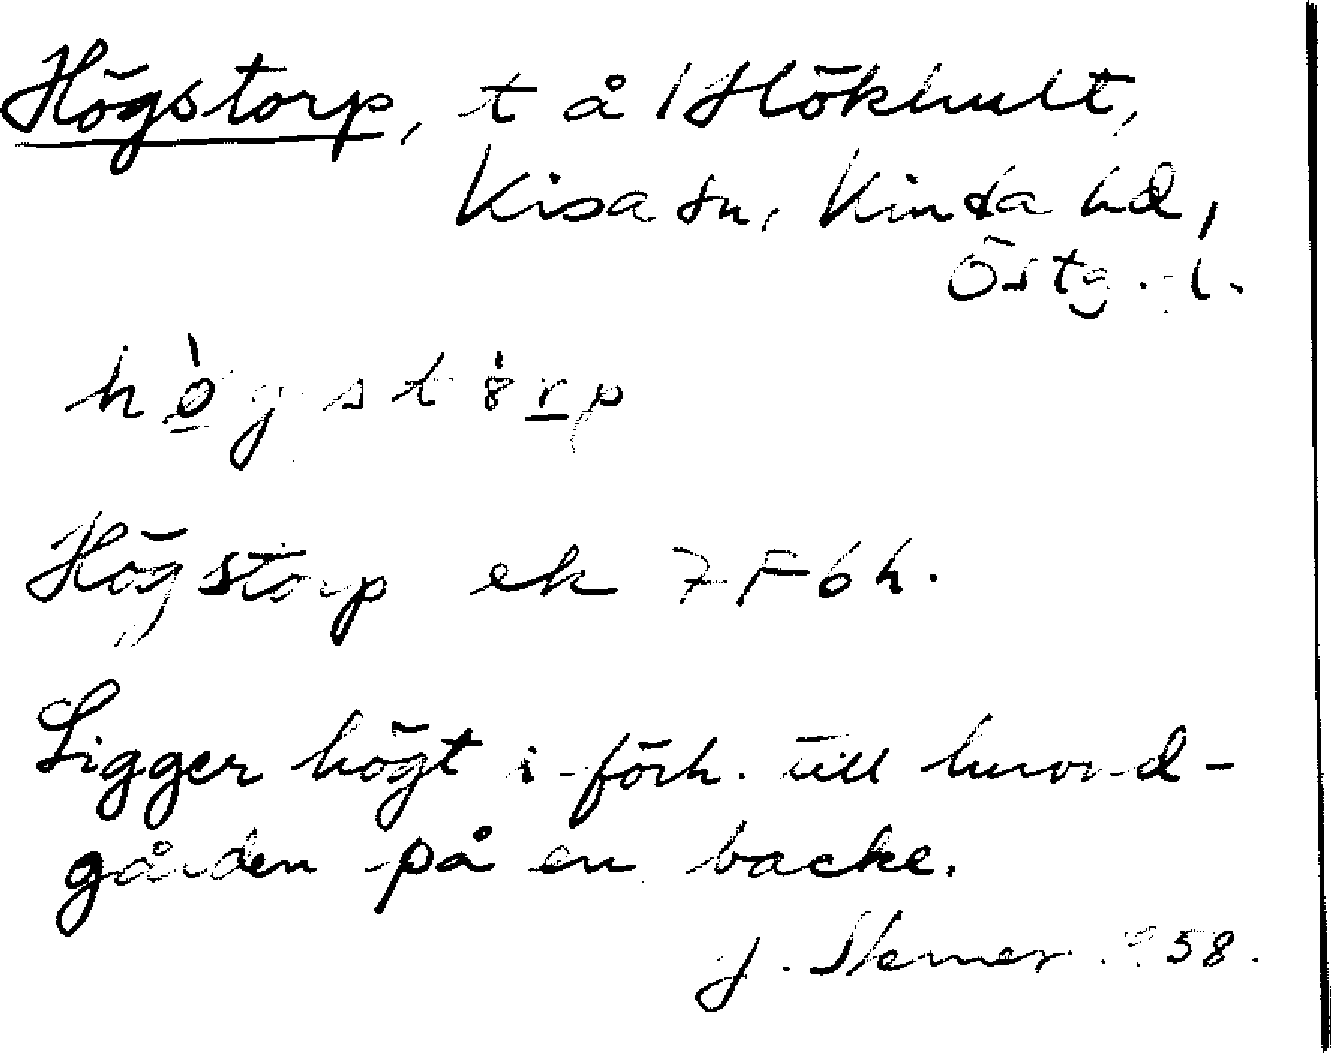 Högstorp, t å 1 Hökhult,
Kisa sn, Kinda hd,
Östg. l.
Högstorp ek 7 F 6 h.
Ligger högt i förh. till huvud-
gården på en backe.
J. 1958.